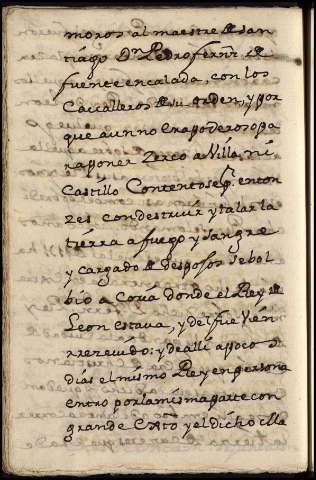 moros al maestre de san
tiágo Dn Pedro fernz. de
fuente encalada, con los
Cavalleros de su orden, y por
que aun no era poderoso pa
ra poner Zerco a Villa, ni
Castillo Contentose p.r enton
zes con destruir y talar la
tierra a fuego y sangre
y cargado de despojos se bol
bió a Coria donde el Rey de
Leon estava, y del fue vien
rrezevido: y de alli a poco s
dias el mismo Rey en persona
entro por la misma parte con
grande exto y el dicho